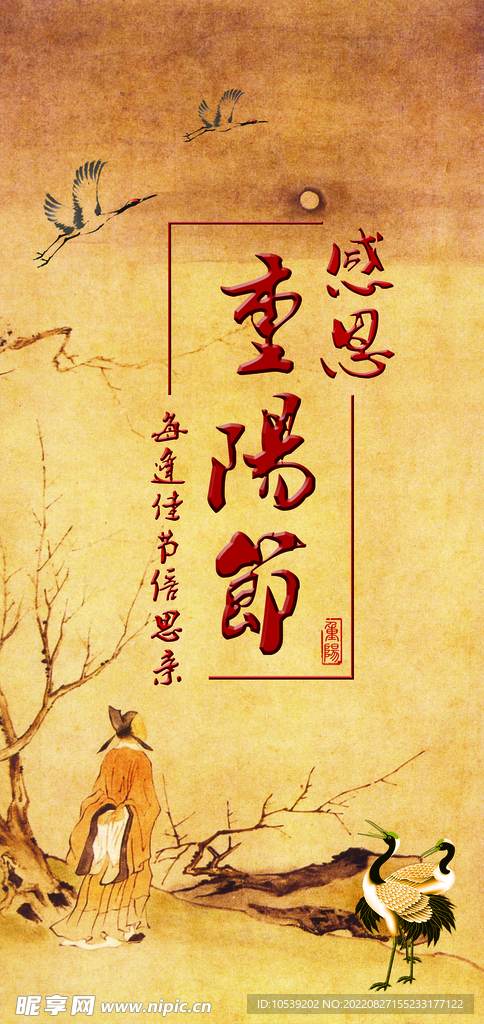 感恩
重陽節
每逢佳节倍思亲
重陽
昵享网 www.nipic.cn
ID:10539202 NO:20220827155233177122